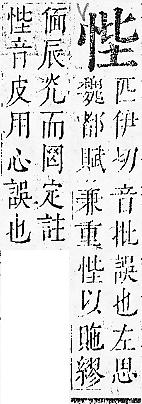 匹伊切音批誤也左思
魏都賦兼重以貤繆
偭辰光而罔定註
音皮用心誤也